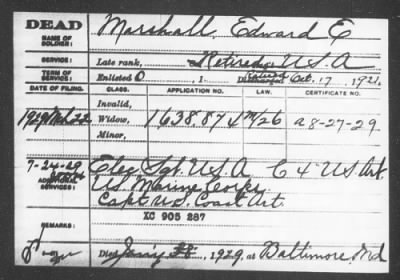 DEAD
NAME OF SOLDIER: Marshall, Edward E
SERVICE: Late rank, Retired, U.S.A
TERM OF SERVICE: Enlisted 0, 1 Retired Discharged Oct. 17, 1921.
DATE OF FILING. CLASS. APPLICATION NO. LAW. CERTIFICATE NO.
Invalid,
1929 Widow, 1638,874 A 8-27-29
Minor,
7-24-29 Elec. Sgt. U.S.A. C 4" US Art.
ADDITIONAL SERVICES: U.S. Marine Corps
Capt. U.S. Coast Art.
XC 905 287
REMARKS:
Died, 1929, at Baltimore, Md